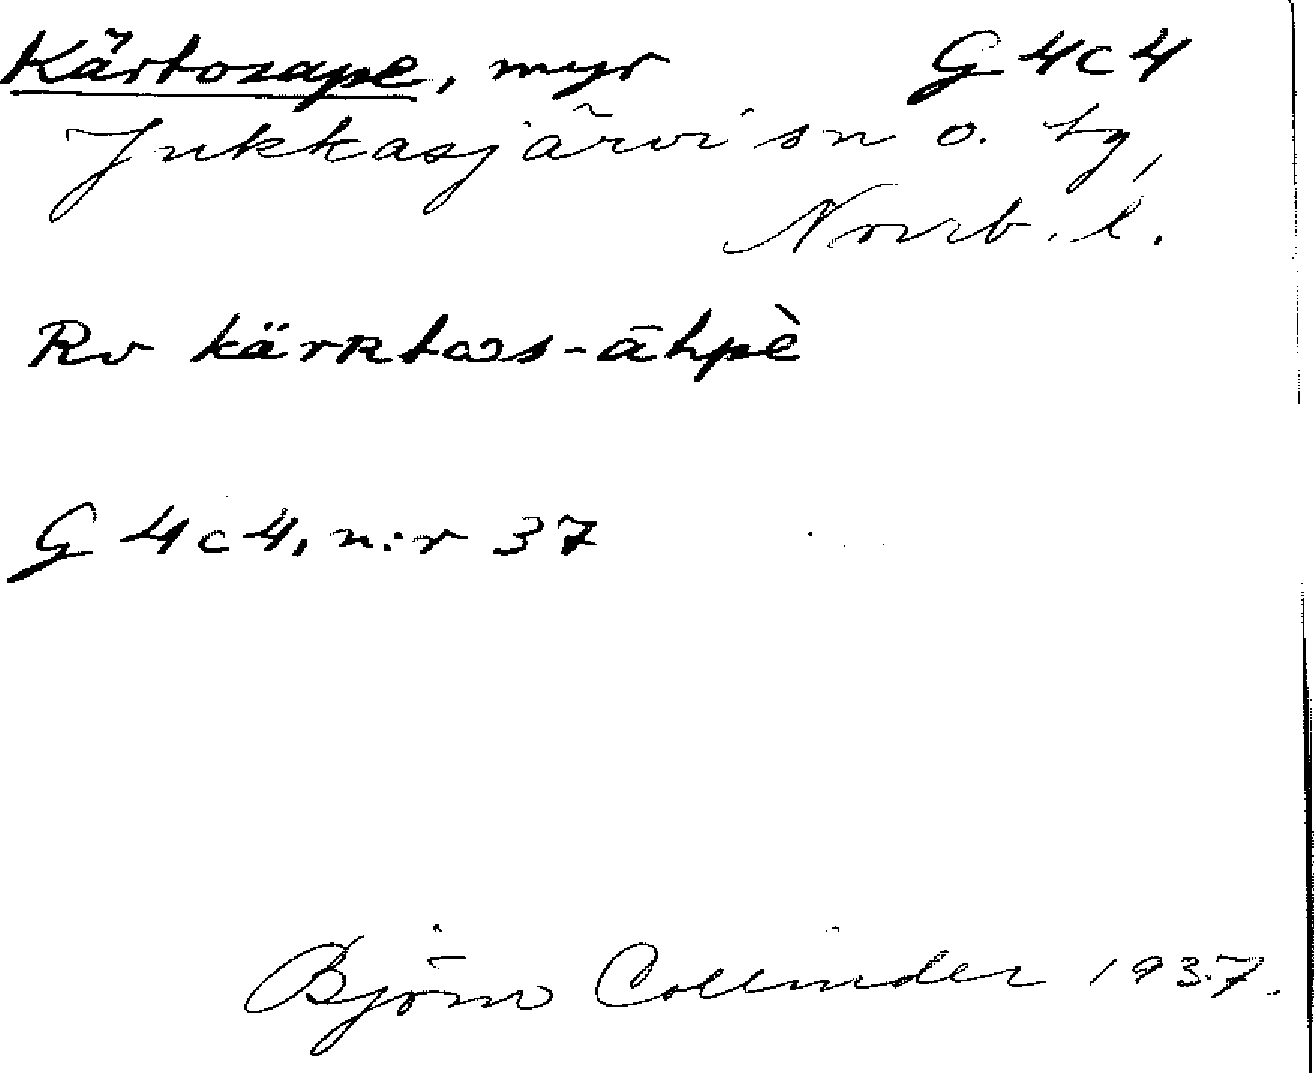 Kärtosape, myr G 4c4
Jukkasjärvi sn o. tg,
Norrb. l.
Rv kärʀtɷs-āhpè
G 4c4, n:r 37
Björn Collinder 1937.